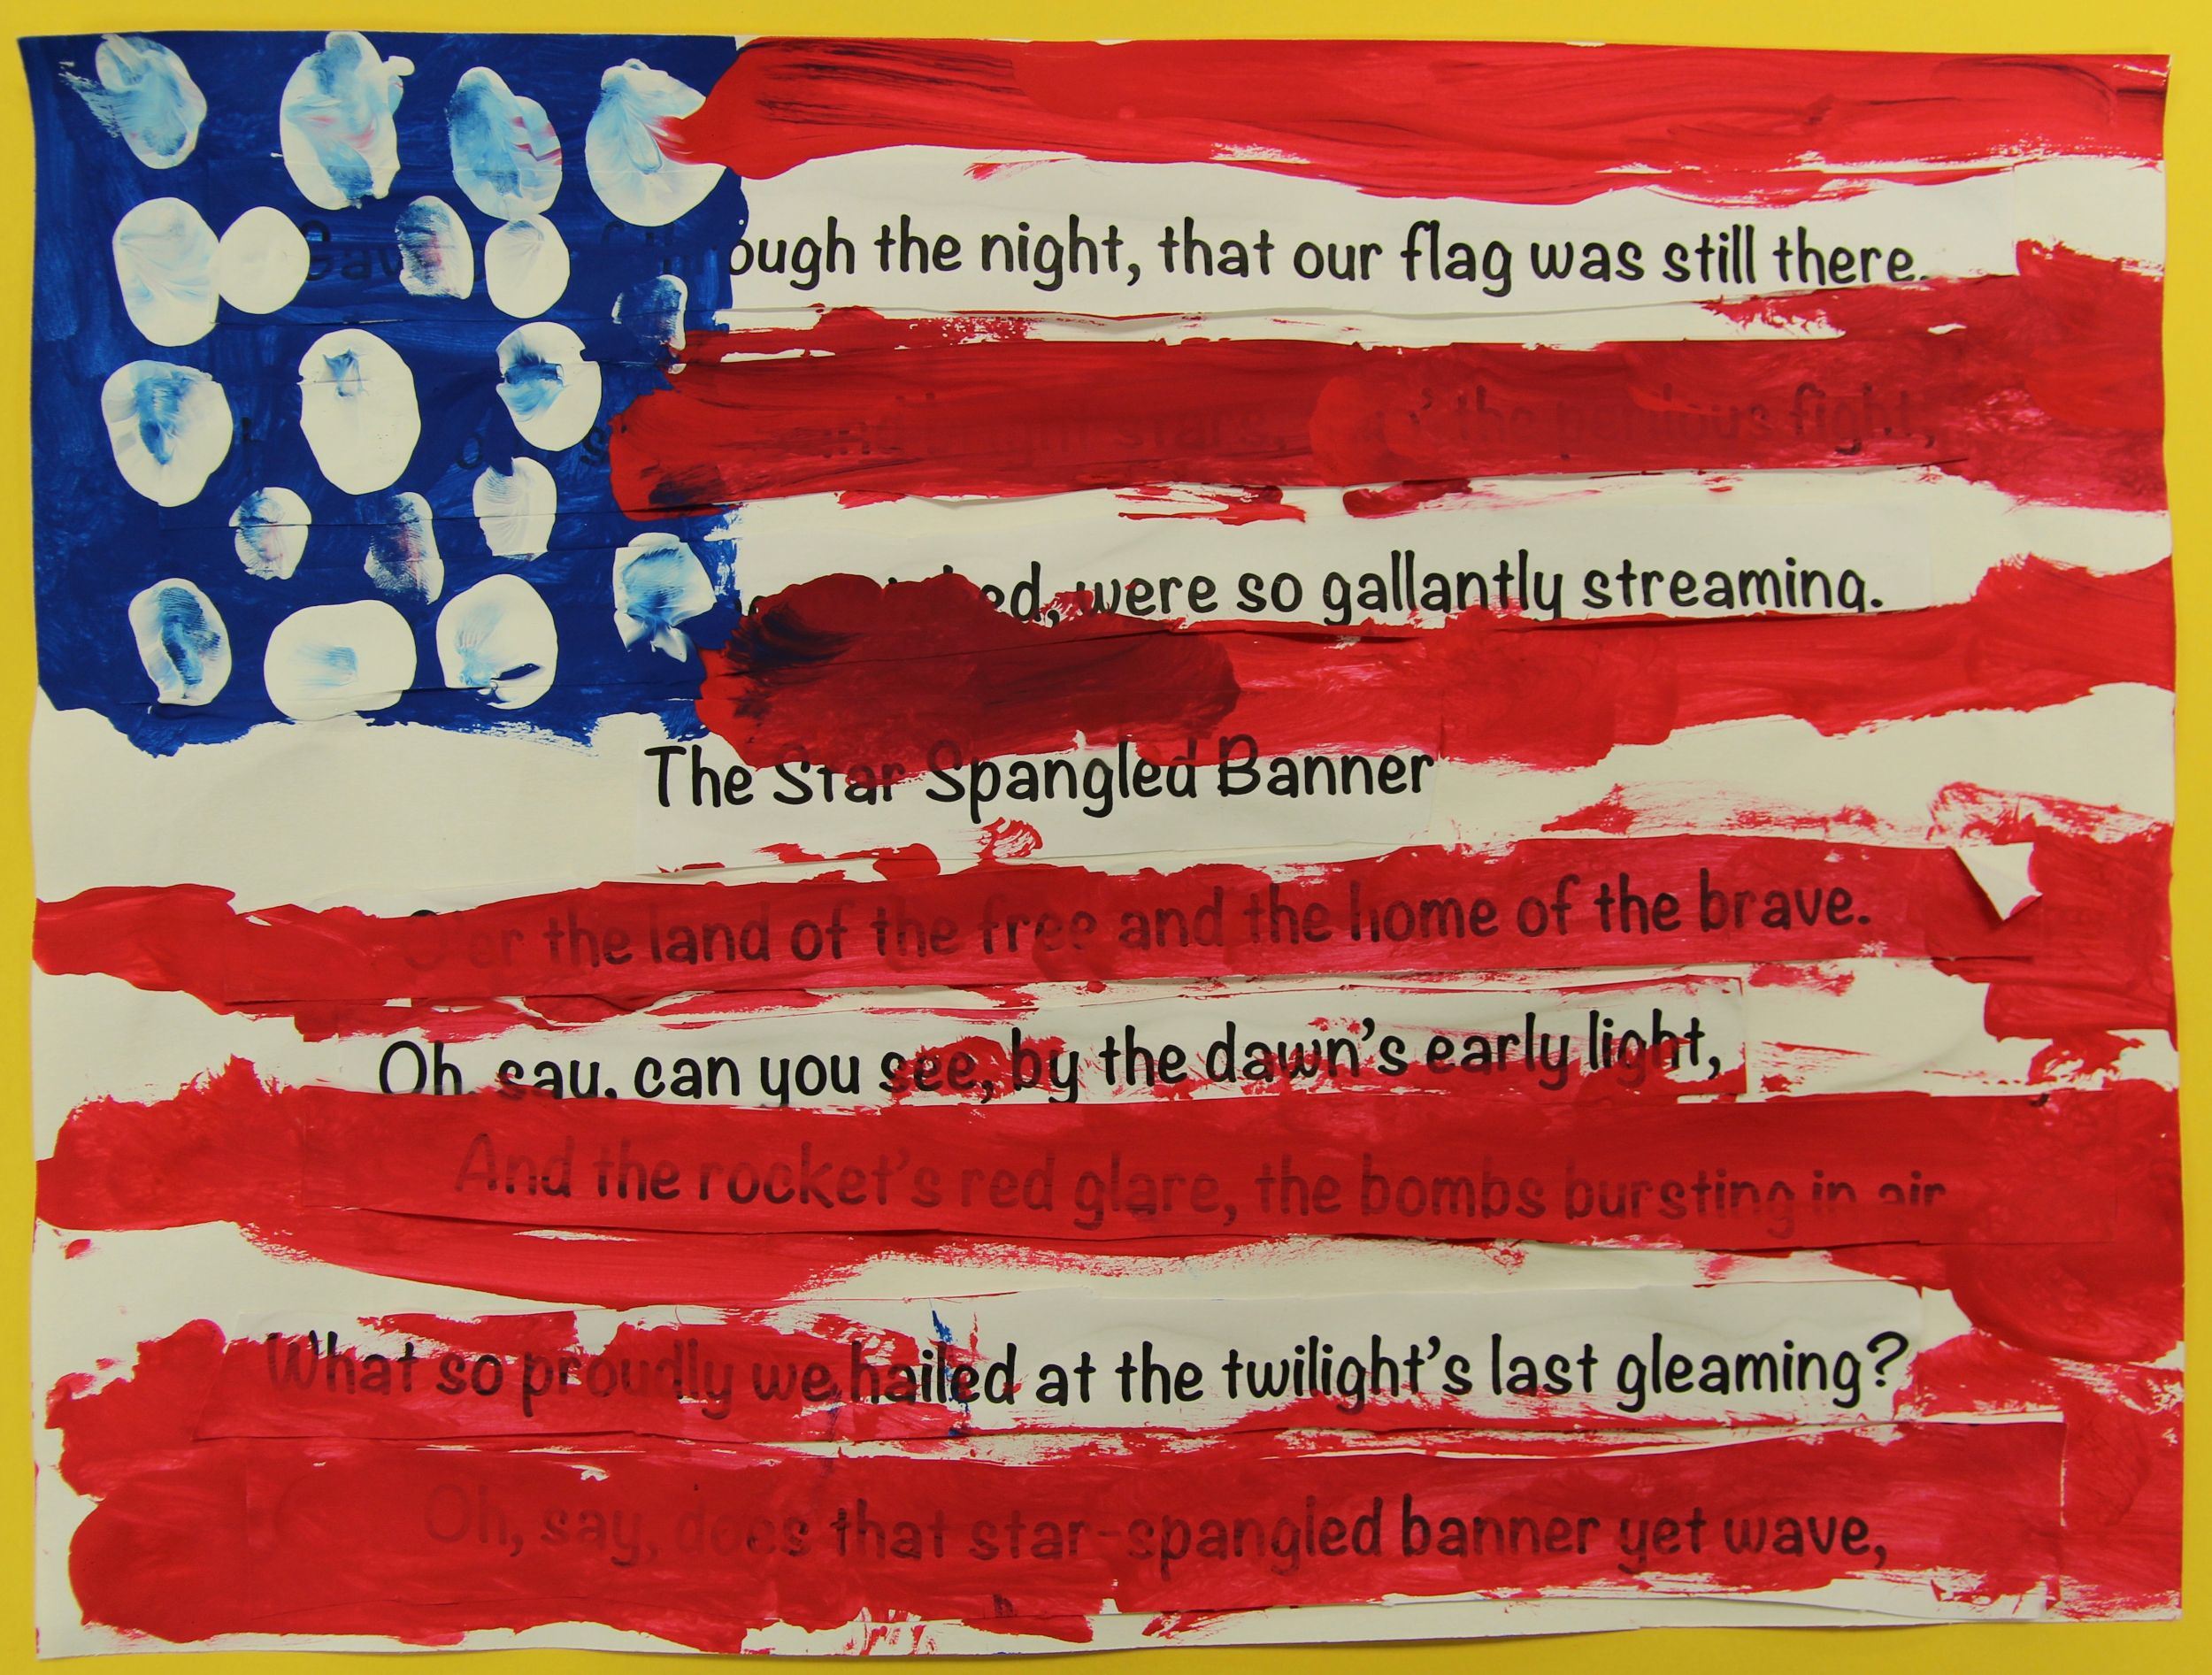 Gav ough the night, that our flag was still there.
and bright stars, the perilous fight,
ed, were so gallantly streaming.
The Star Spangled Banner
O'er the land of the free and the home of the brave.
Oh, say, can you see, by the dawn's early light,
And the rocket's red glare, the bombs bursting in air
What so proudly we hailed at the twilight's last gleaming?
Oh, say, does that star-spangled banner yet wave,